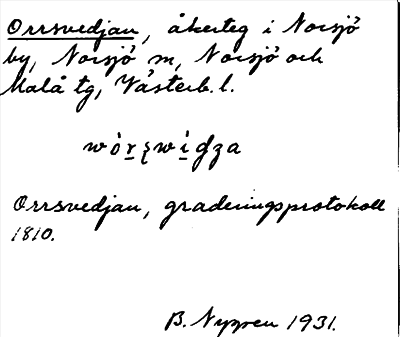 Orrsvedjan, åkerteg i Norsjö
by, Norsjö sn, Norsjö och
Malå tg, Västerb. l.
Orrsvedjan, graderingsprotokoll
1810.
B. Nygren 1931.